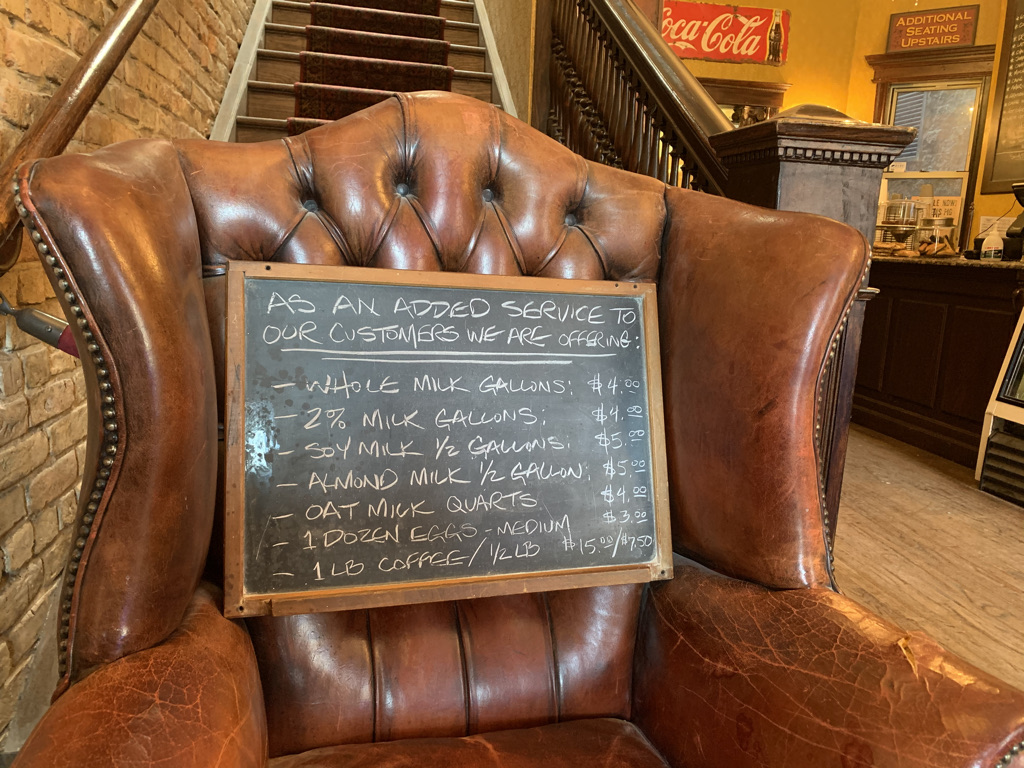 Coca-Cola
ADDITIONAL
SEATING
UPSTAIRS
AS AN ADDED SERVICE TO
OUR CUSTOMERS WE ARE OFFERING:
- WHOLE MILK GALLONS: $4.00
- 2% MILK GALLONS: $4.00
- SOY MILK 1/2 GALLONS: $5.00
- ALMOND MILK 1/2 GALLON: $5.00
- OAT MILK QUARTS $4.00
- 1 DOZEN EGGS - MEDIUM $3.00
- 1 LB COFFEE/1/2 LB $15.00/$7.50